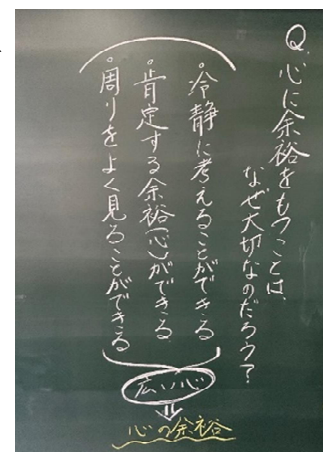 Q.心に余裕をもつことは、
なぜ大切なのだろう？
・冷静に考えることができる
・肯定する余裕(心)ができる
・周りをよく見ることができる
広い心
⇓
心の余裕